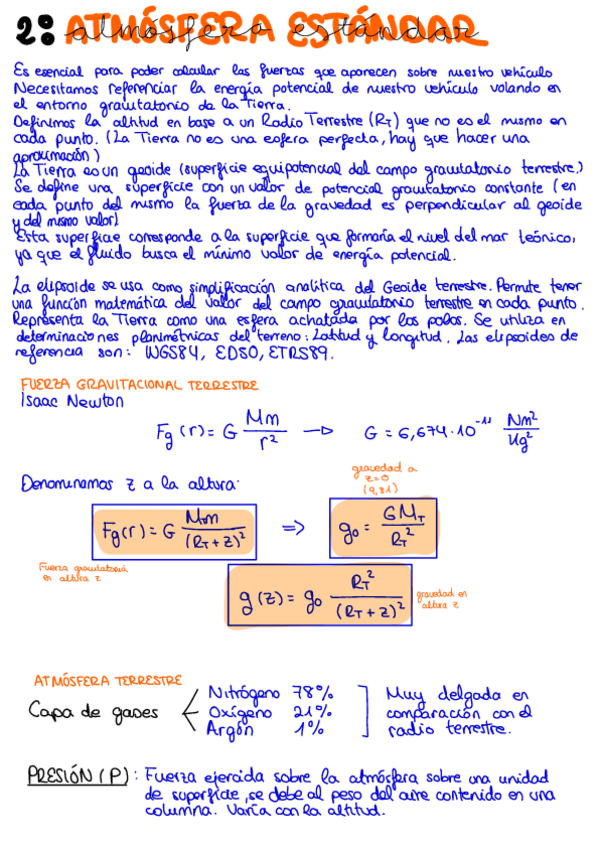 2: ATMÓSFERA ESTÁNDAR
atmósfera estándar
Es esencial para poder calcular las fuerzas que aparecen sobre nuestro vehículo
Necesitamos referenciar la energía potencial de nuestro vehículo volando en
el entorno gravitatorio de la Tierra.
Definimos la altitud en base a un Radio Terrestre (R_T) que no es el mismo en
cada punto. (La Tierra no es una esfera perfecta, hay que hacer una
aproximación)
La Tierra es un geoide (superficie equipotencial del campo gravitatorio terrestre)
Se define una superficie con un valor de potencial gravitatorio constante (en
cada punto del mismo la fuerza de la gravedad es perpendicular al geoide
y del mismo valor)
Esta superficie corresponde a la superficie que formaría el nivel del mar teórico,
ya que el fluido busca el mínimo valor de energía potencial.
La elipsoide se usa como simplificación analítica del Geoide terrestre. Permite tener
una función matemática del valor del campo gravitatorio terrestre en cada punto.
Representa la Tierra como una esfera achatada por los polos. Se utiliza en
determinaciones planimétricas del terreno: Latitud y longitud. Las elipsoides de
referencia son: WGS84, ED50, ETRS89.
FUERZA GRAVITACIONAL TERRESTRE
Isaac Newton
Fg(r) = G Mm/r² → G = 6,674·10⁻¹¹ Nm²/Kg²
Denominamos z a la altura:
gravedad a
z=0
(9,81)
Fg(r) = G Mm/(R_T+z)² ⇒ g₀ = GM_T/R_T²
Fuerza gravitatoria
en altura z
g(z) = g₀ R_T²/(R_T+z)²
gravedad en
altura z
ATMÓSFERA TERRESTRE
Capa de gases
Nitrógeno 78%
Oxígeno 21%
Argón 1%
Muy delgada en
comparación con el
radio terrestre.
PRESIÓN (P): Fuerza ejercida sobre la atmósfera sobre una unidad
de superficie, se debe al peso del aire contenido en una
columna. Varía con la altitud.